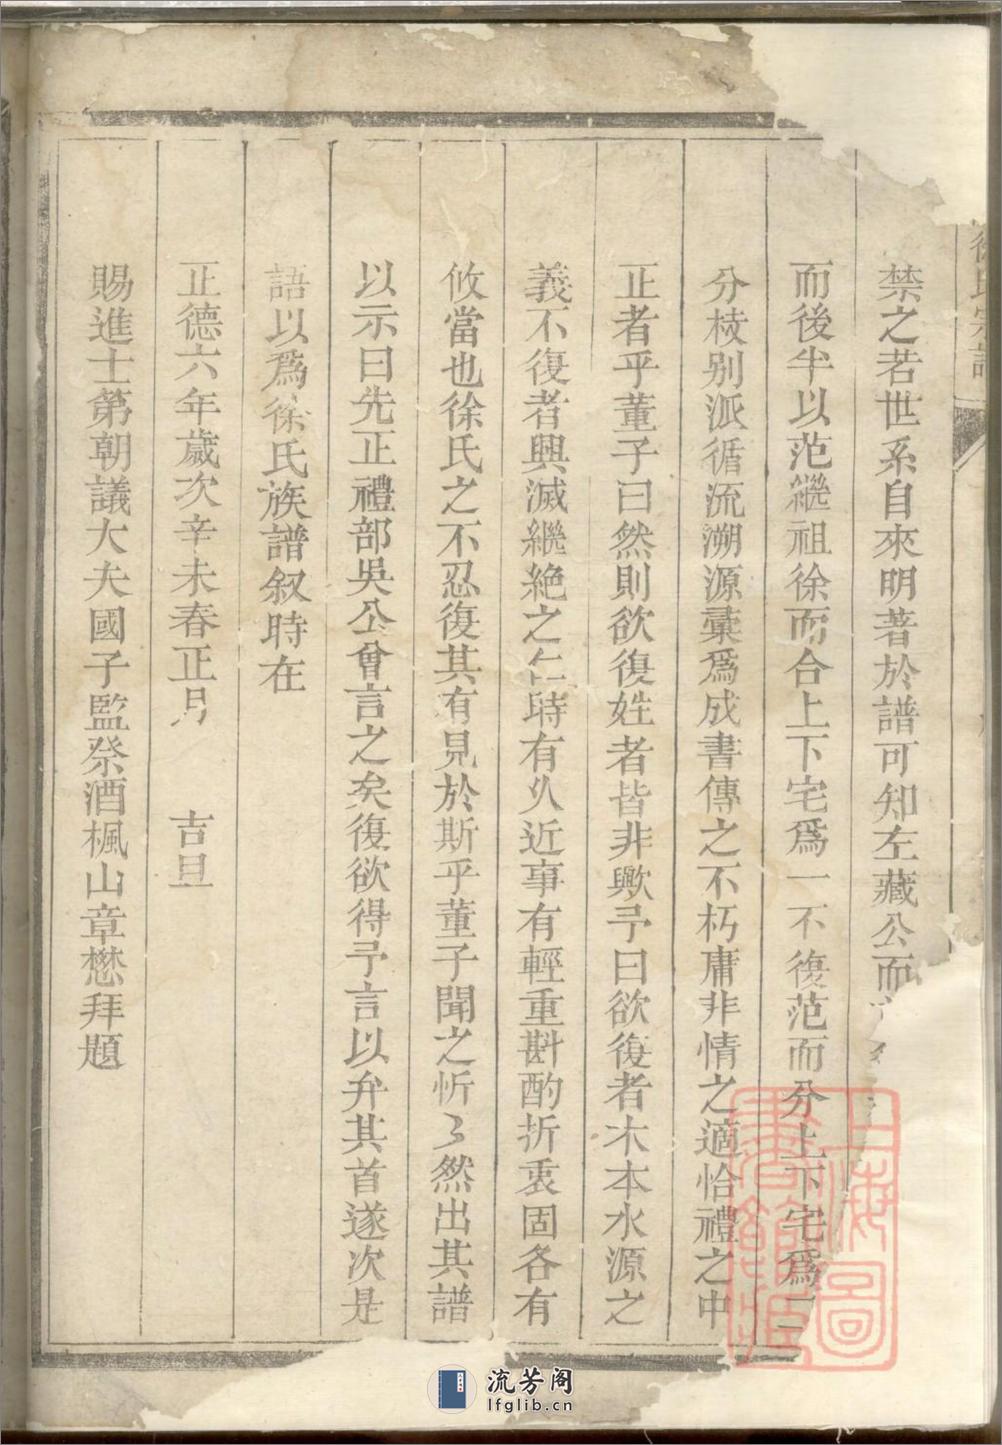 徐氏宗譜
禁之若世系自來明著於譜可知左藏公而
而後半以范繼祖徐而合上下宅爲一不復范而分上下宅爲二
分枝别派循流溯源彚爲成書傳之不朽庸非情之適恰禮之中
正者乎董子曰然則欲復姓者皆非歟予曰欲復者木本水源之
義不復者興滅繼絶之仁時有久近事有輕重斟酌折衷固各有
攸當也徐氏之不忍復其有見於斯乎董子聞之忻々然出其譜
以示曰先正禮部吳公曾言之矣復欲得予言以弁其首遂次是
語以爲徐氏族譜叙時在
正德六年歲次辛未春正月 吉旦
賜進士第朝議大夫國子監祭酒楓山章懋拜題
上海圖書館藏
流芳阁
lfglib.cn